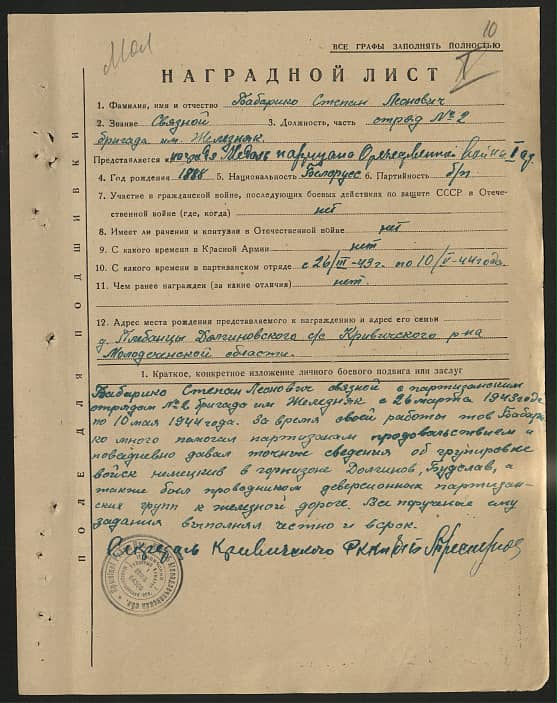 Мол
10
ВСЕ ГРАФЫ ЗАПОЛНЯТЬ ПОЛНОСТЬЮ
НАГРАДНОЙ ЛИСТ
V
1. Фамилия, имя и отчество Бабарико Степан Леонович
2. Звание Связной 3. Должность, часть отряд № 2
бригада им. Железняк
Представляется к Медаль партизана Отечественной войны
4. Год рождения 1888 5. Национальность Белорусс 6. Партийность б/п
7. Участие в гражданской войне, последующих боевых действиях по защите СССР в Отече-
ственной войне (где, когда) нет
8. Имеет ли ранения и контузии в Отечественной войне нет
9. С какого времени в Красной Армии нет
10. С какого времени в партизанском отряде с 26/III-43 г. по 10/V-44 года
11. Чем ранее награжден (за какие отличия) нет.
12. Адрес места рождения представляемого к награждению и адрес его семьи
д. Плебанцы Долгиновского с/с Кривичского р-на
Молодеченской области.
1. Краткое, конкретное изложение личного боевого подвига или заслуг
Бабарико Степан Леонович связной с партизанским
отрядам № 2 бригада им Железняк с 26 марта 1943 года
по 10 мая 1944 года. За время своей работы тов Бабари-
ко много помогал партизанам продовольствием и
повседневно давал точные сведения об групировке
войск немецких в горнизоне Долгинов, Будслав, а
также был проводником деверсионных партизан-
ских групп к железной дороге. Все порученые ему
задания выполнял честно и
Секретарь Кривичского РК КП(б)Б
ПОЛЕ ДЛЯ ПОДШИВКИ